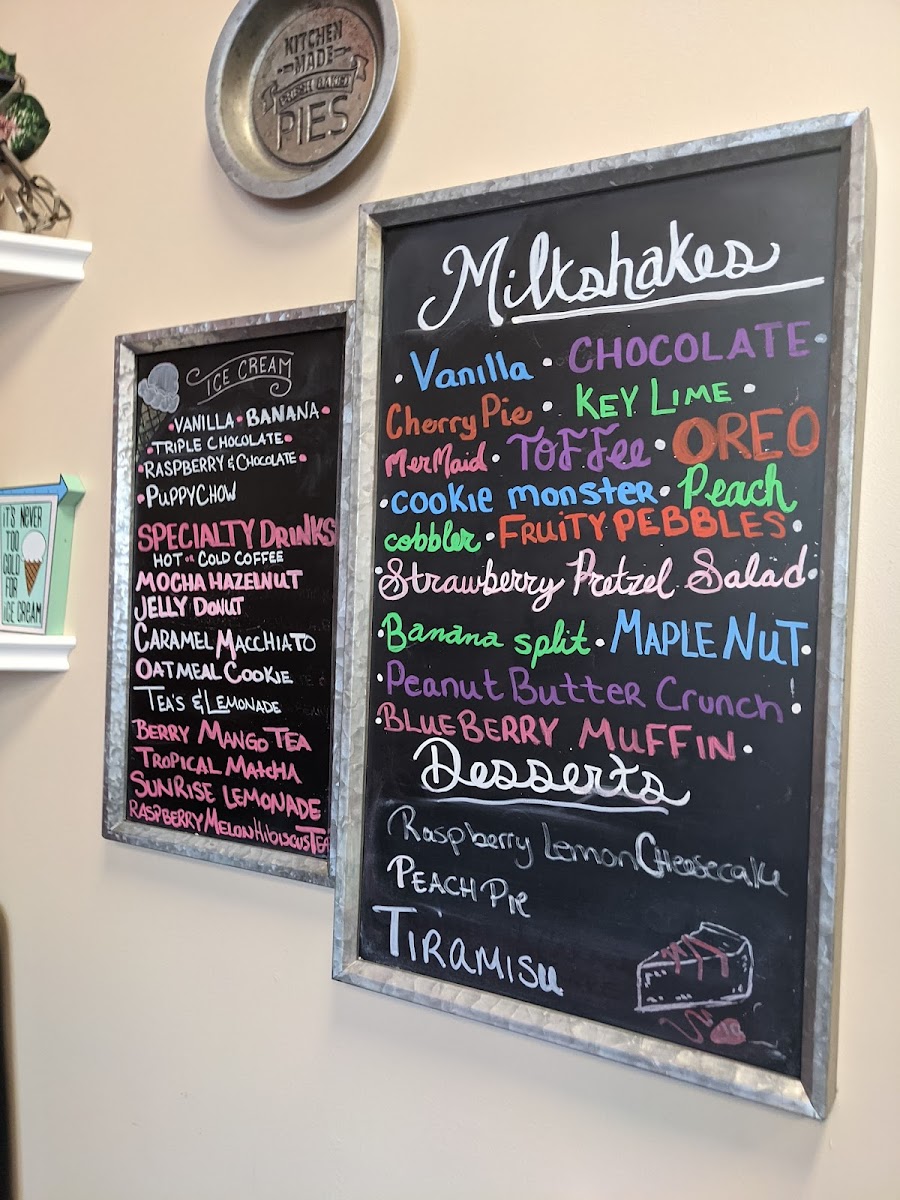 KITCHEN
MADE
FRESH BAKED
PIES
IT'S NEVER
TOO
COLD
FOR
ICE CREAM
ICE CREAM
• VANILLA • BANANA •
• TRIPLE CHOCOLATE •
• RASPBERRY & CHOCOLATE •
• PUPPYCHOW
SPECIALTY DRINKS
HOT OR COLD COFFEE
MOCHA HAZELNUT
JELLY DONUT
CARAMEL MACCHIATO
OATMEAL COOKIE
TEA'S & LEMONADE
BERRY MANGO TEA
TROPICAL MATCHA
SUNRISE LEMONADE
RASPBERRY MELON HIBISCUS TEA
Milkshakes
• Vanilla • CHOCOLATE •
Cherry Pie • KEY LIME •
MerMaid • TOFFee • OREO
• cookie monster • Peach
cobbler • FRUITY PEBBLES •
• Strawberry Pretzel Salad •
• Banana split • MAPLE NUT •
• Peanut Butter Crunch •
• BLUEBERRY MUFFIN •
Desserts
Raspberry Lemon Cheesecake
PEACH PIE
TIRAMISU